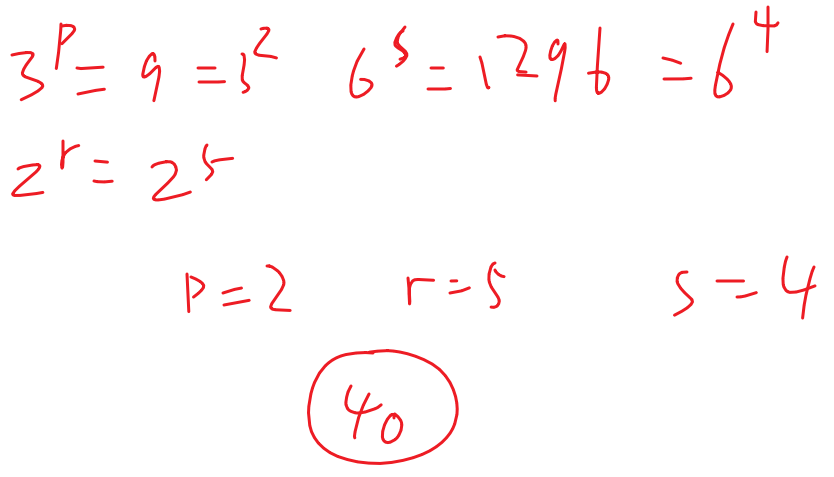 3^p = 9 = 3^2 6^s = 1296 = 6^4
2^r = 2^5
p = 2 r = 5 s = 4
40